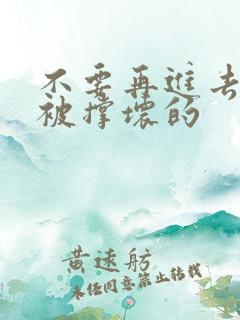 不要再进去
被撑坏的
黄远舫
未经同意禁止转载